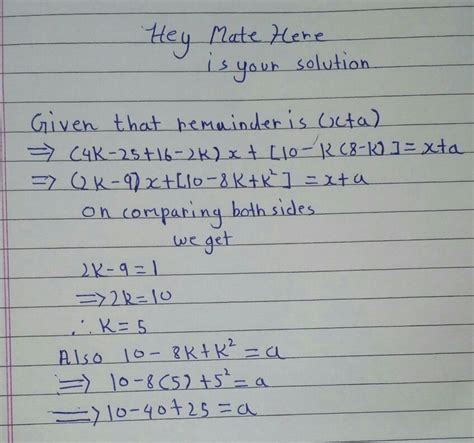 Hey Mate Here
is your solution
Given that remainder is (x+a)
⇒ (4K-25+16-2K)x + [10-K(8-K)] = x+a
⇒ (2K-9)x+[10-8K+K²] = x+a
on comparing both sides
we get
2K-9=1
⇒2K=10
∴ K=5
Also 10-8K+K²=a
⇒ 10-8(5)+5²=a
⇒ 10-40+25=a